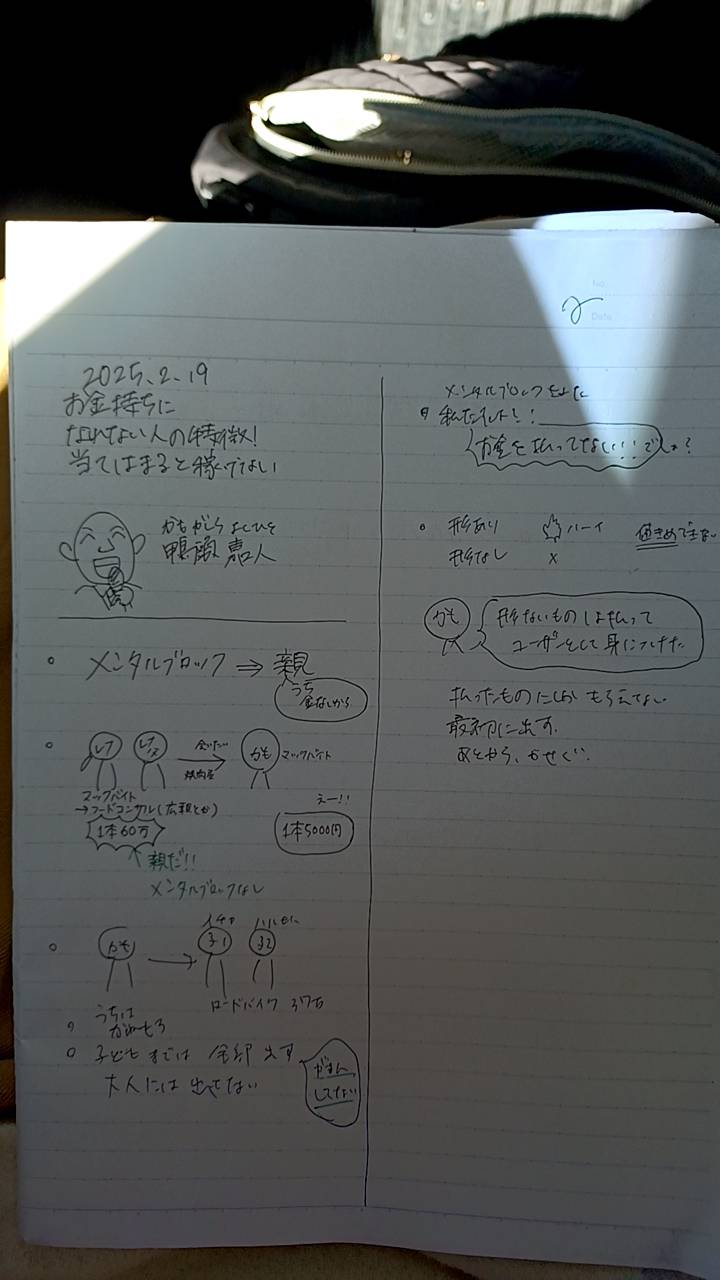 No.
Date
2025.2.19
お金持ちに
なれない人の特徴!
当てはまると稼げない
かもがしら よしひと
鴨頭 嘉人
○ メンタルブロック ⇒ 親
うち
金ないから
かも
マックバイト
焼肉屋
マックバイト
→フードコンサル(広報とか)
1本60万
えー!!
1本5000円
親だ!!
メンタルブロックなし
かも
子1 子2
ロードバイク 37万
うちは
子どもまでは 全部 出す
大人には 出てない
がまん
してない
メンタルブロック
お金を払ってない!!でしょ?
○ 形あり ハーイ 値ぎめできない
形なし ×
かも
形ないものしはらって
ユーザーとして身につけた
払ったものにしか もらえない
最初に出す.
あとから、かせぐ.